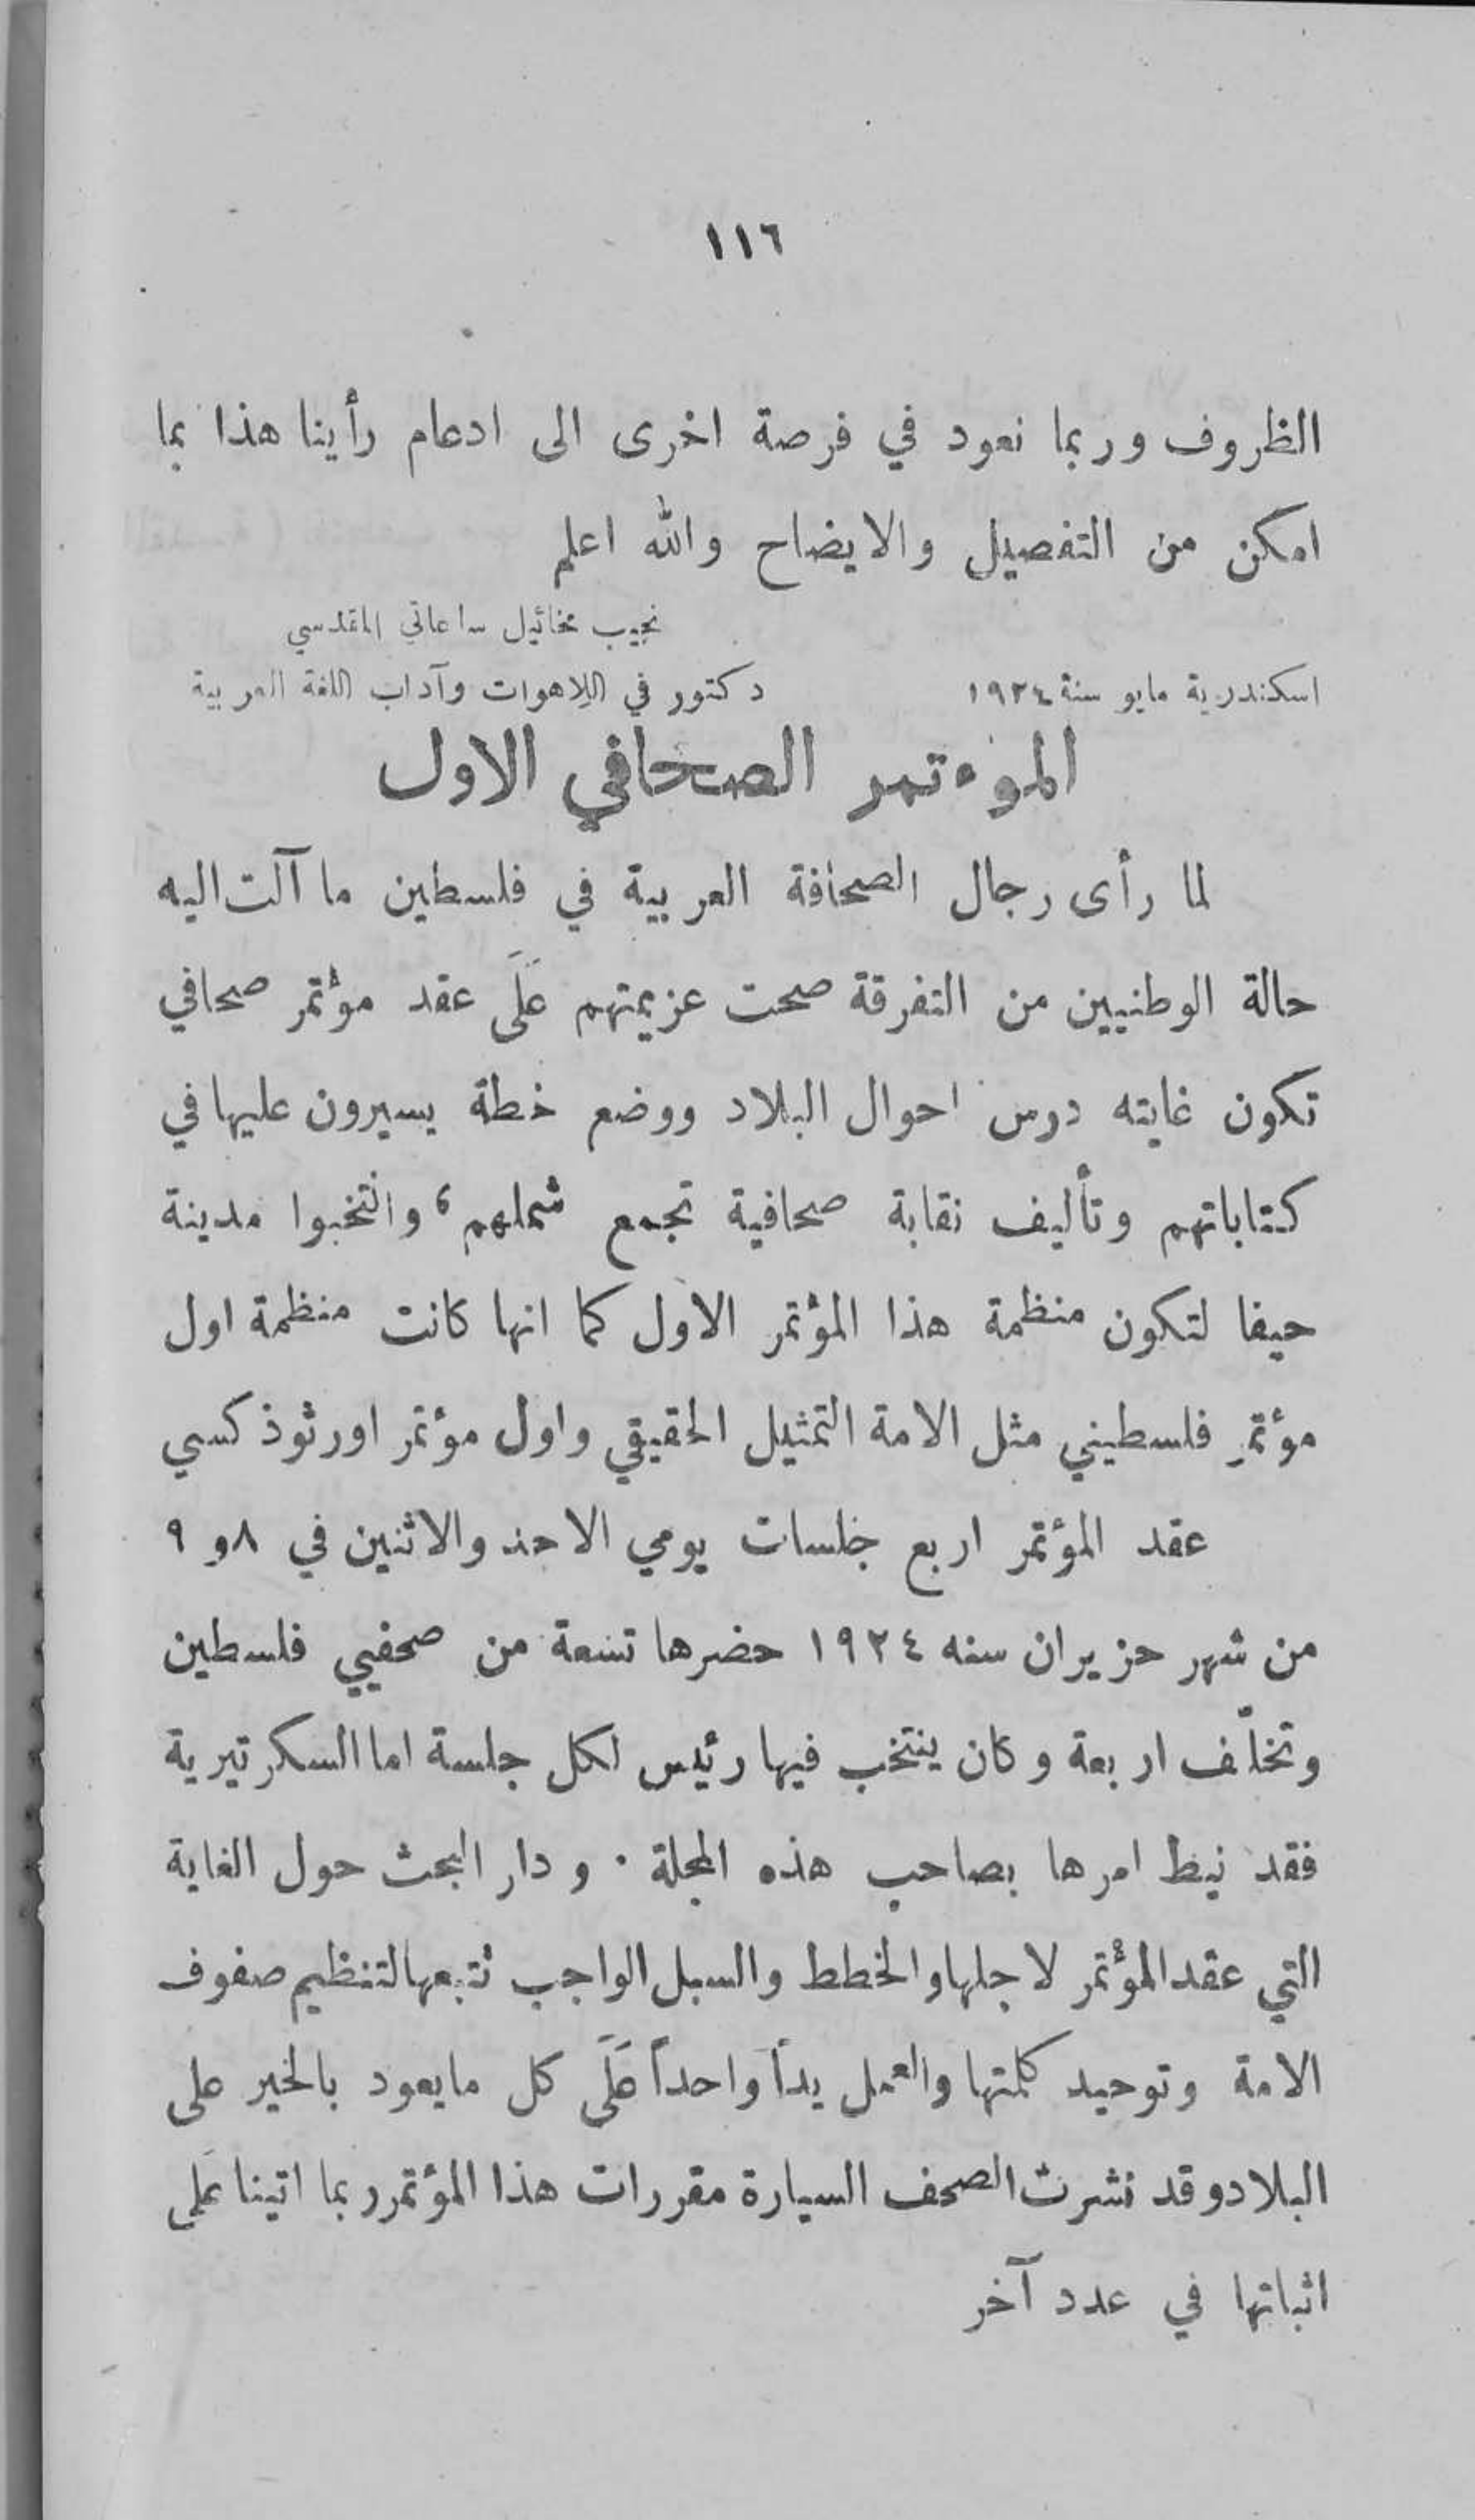 ١١٦
الظروف وربما نعود في فرصة اخرى الى ادعام رأينا هذا بما
امكن من التفصيل والايضاح والله اعلم
نجيب مخائيل ساعاتي المقدسي
اسكندرية مايو سنة ١٩٢٤ دكتور في اللاهوات وآداب اللغة العربية
الموءتمر الصحافي الاول
لما رأى رجال الصحافة العربية في فلسطين ما آلت اليه
حالة الوطنيين من التفرقة صحت عزيمتهم عَلَى عقد مؤتمر صحافي
تكون غايته درس احوال البلاد ووضع خطة يسيرون عليها في
كتاباتهم وتأليف نقابة صحافية تجمع شملهم، وانتخبوا مدينة
حيفا لتكون منظمة هذا المؤتمر الاول كما انها كانت منظمة اول
مؤتمر فلسطيني مثل الامة التمثيل الحقيقي واول مؤتمر اورثوذكسي
عقد المؤتمر اربع جلسات يومي الاحد والاثنين في ٨و ٩
من شهر حزيران سنه ١٩٢٤ حضرها تسعة من صحفيي فلسطين
وتخلّف اربعة وكان ينتخب فيها رئيس لكل جلسة اما السكرتيرية
فقد نيط امرها بصاحب هذه المجلة · ودار البحث حول الغاية
التي عقد المؤتمر لاجلها والخطط والسبل الواجب تتبعها لتنظيم صفوف
الامة وتوحيد كلمتها والعمل يداً واحداً عَلَى كل مايعود بالخير على
البلاد وقد نشرت الصحف السيارة مقررات هذا المؤتمر ربما اتينا عَلى
اثباتها في عدد آخر